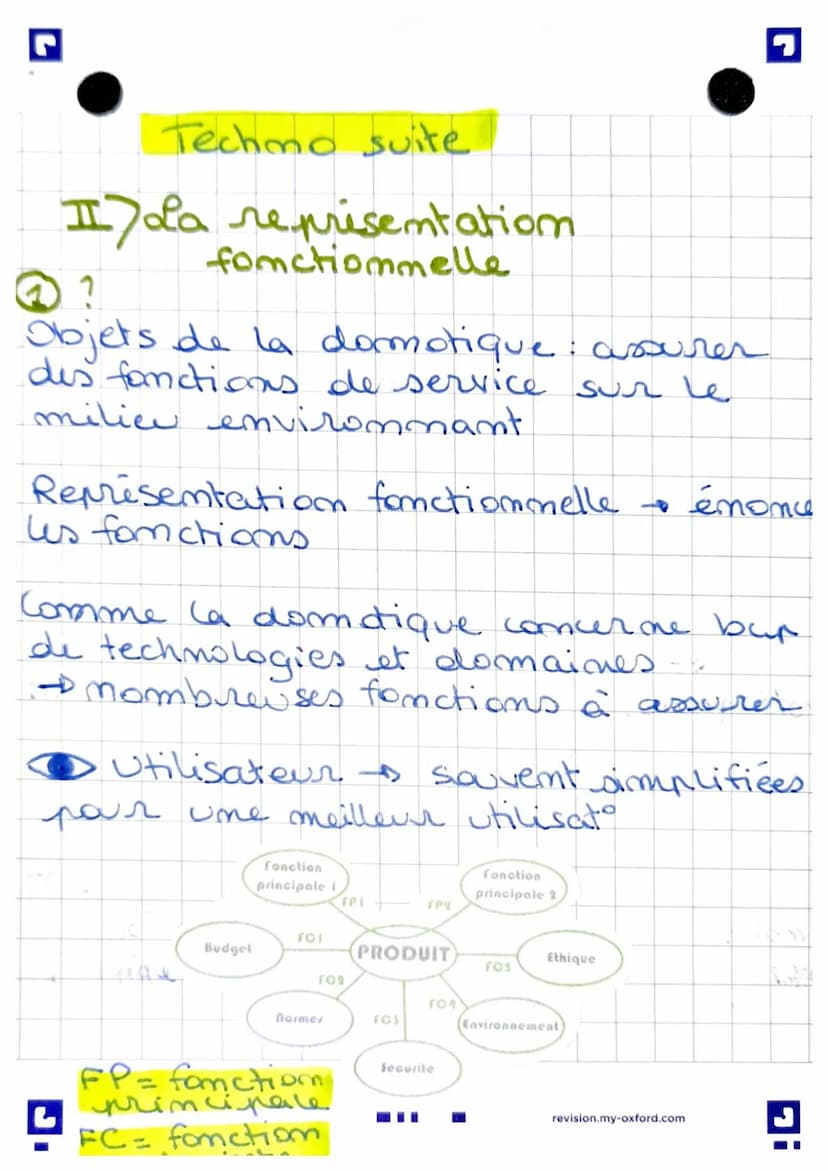 Techno suite
II) La représentation
fonctionnelle
1 ?
Objets de la domotique : assurer
des fonctions de service sur le
milieu environnant
Représentation fonctionnelle → énonce
les fonctions
Comme la domotique concerne bcp
de technologies et domaines
→ nombreuses fonctions à assurer
Utilisateur → souvent simplifiées
pour une meilleur utilisat°
Fonction
principale 1
Fonction
principale 2
FP1
FP2
Budget
FC1
PRODUIT
FC5
Ethique
FC2
Normes
FC3
FC4
Environnement
Sécurité
FP = fonction
principale
FC = fonction
revision.my-oxford.com